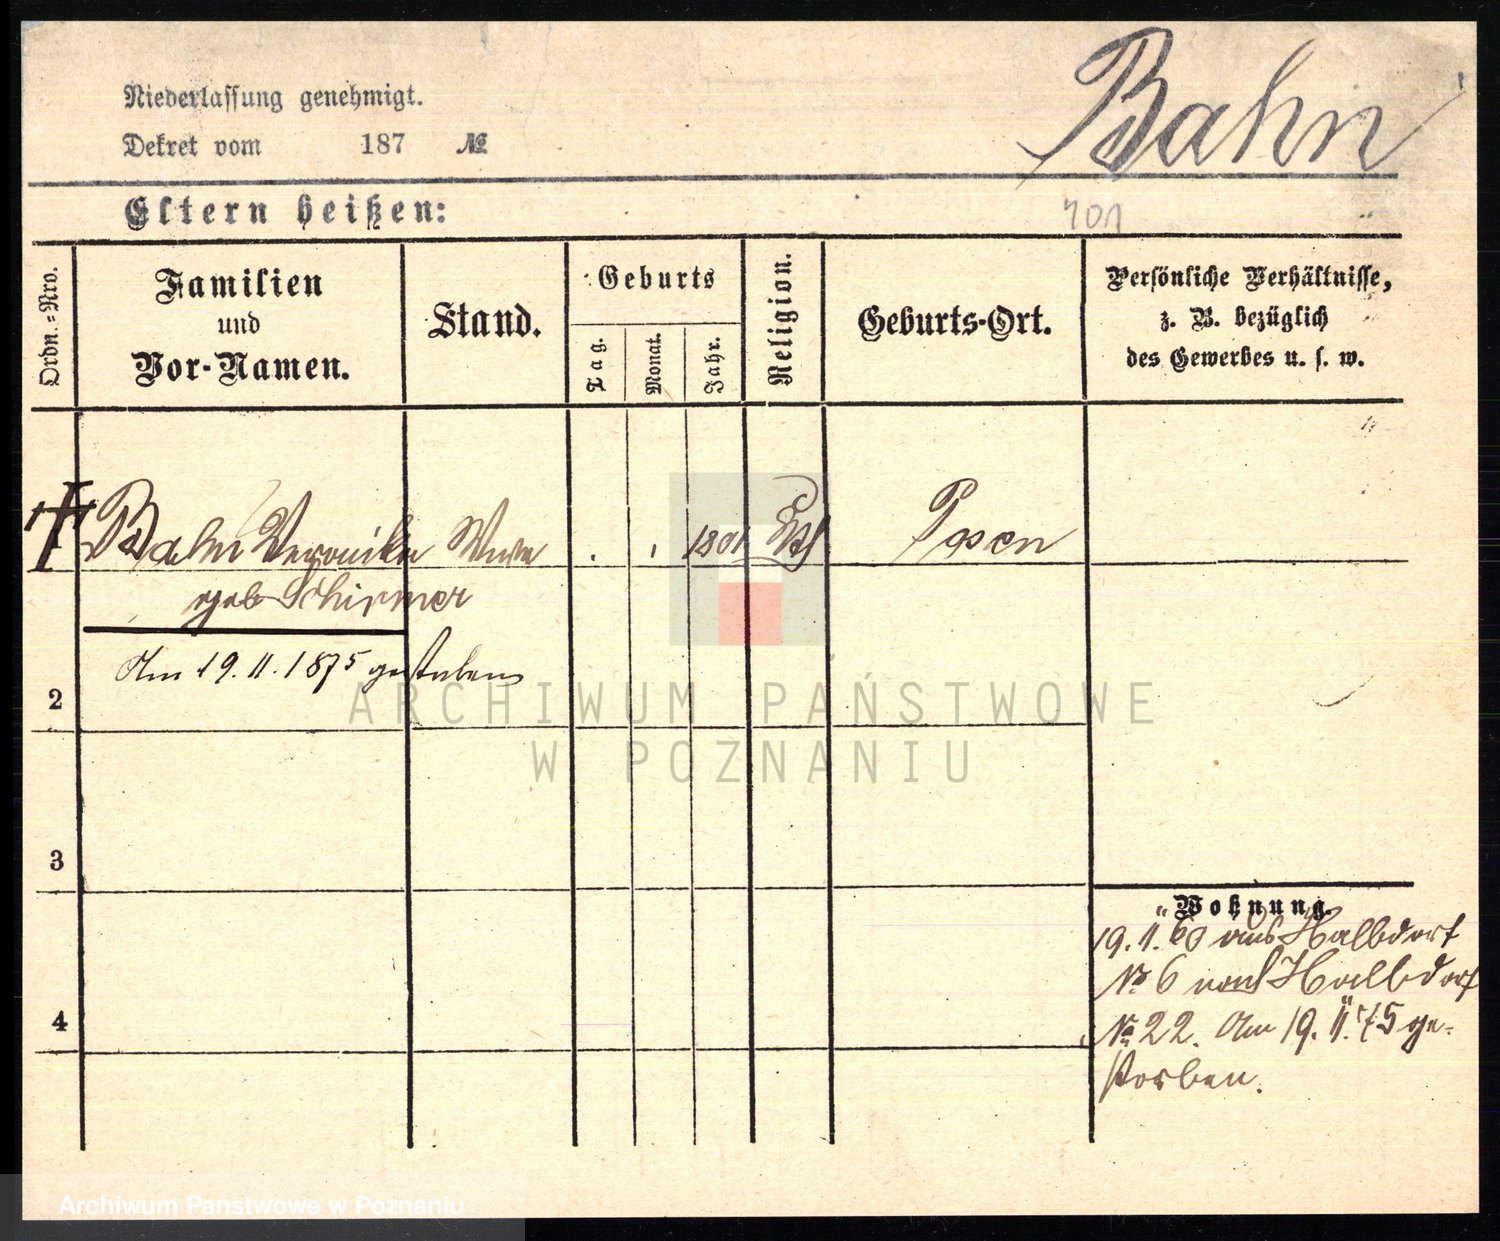 Bahn
Niederlassung genehmigt.
Dekret vom 187 №
Eltern heißen:
701
Ordn.-Nro.
Familien
und
Vor-Namen.
Stand.
Geburts
Tag.
Monat.
Jahr.
Religion.
Geburts-Ort.
Persönliche Verhältnisse,
z. B. bezüglich
des Gewerbes u. s. w.
Bahn Veronika Wwe 1801 Posen
geb Schirmer
Am 19. 11. 1875 gestorben
2
3
4
Wohnung.
19. 11. 60 aus Halbdorf
№ 6 nach Halbdorf
№ 22. Am 19. 11. 75 ge-
storben.
ARCHIWUM PAŃSTWOWE
W POZNANIU
Archiwum Panstwowe w Poznaniu